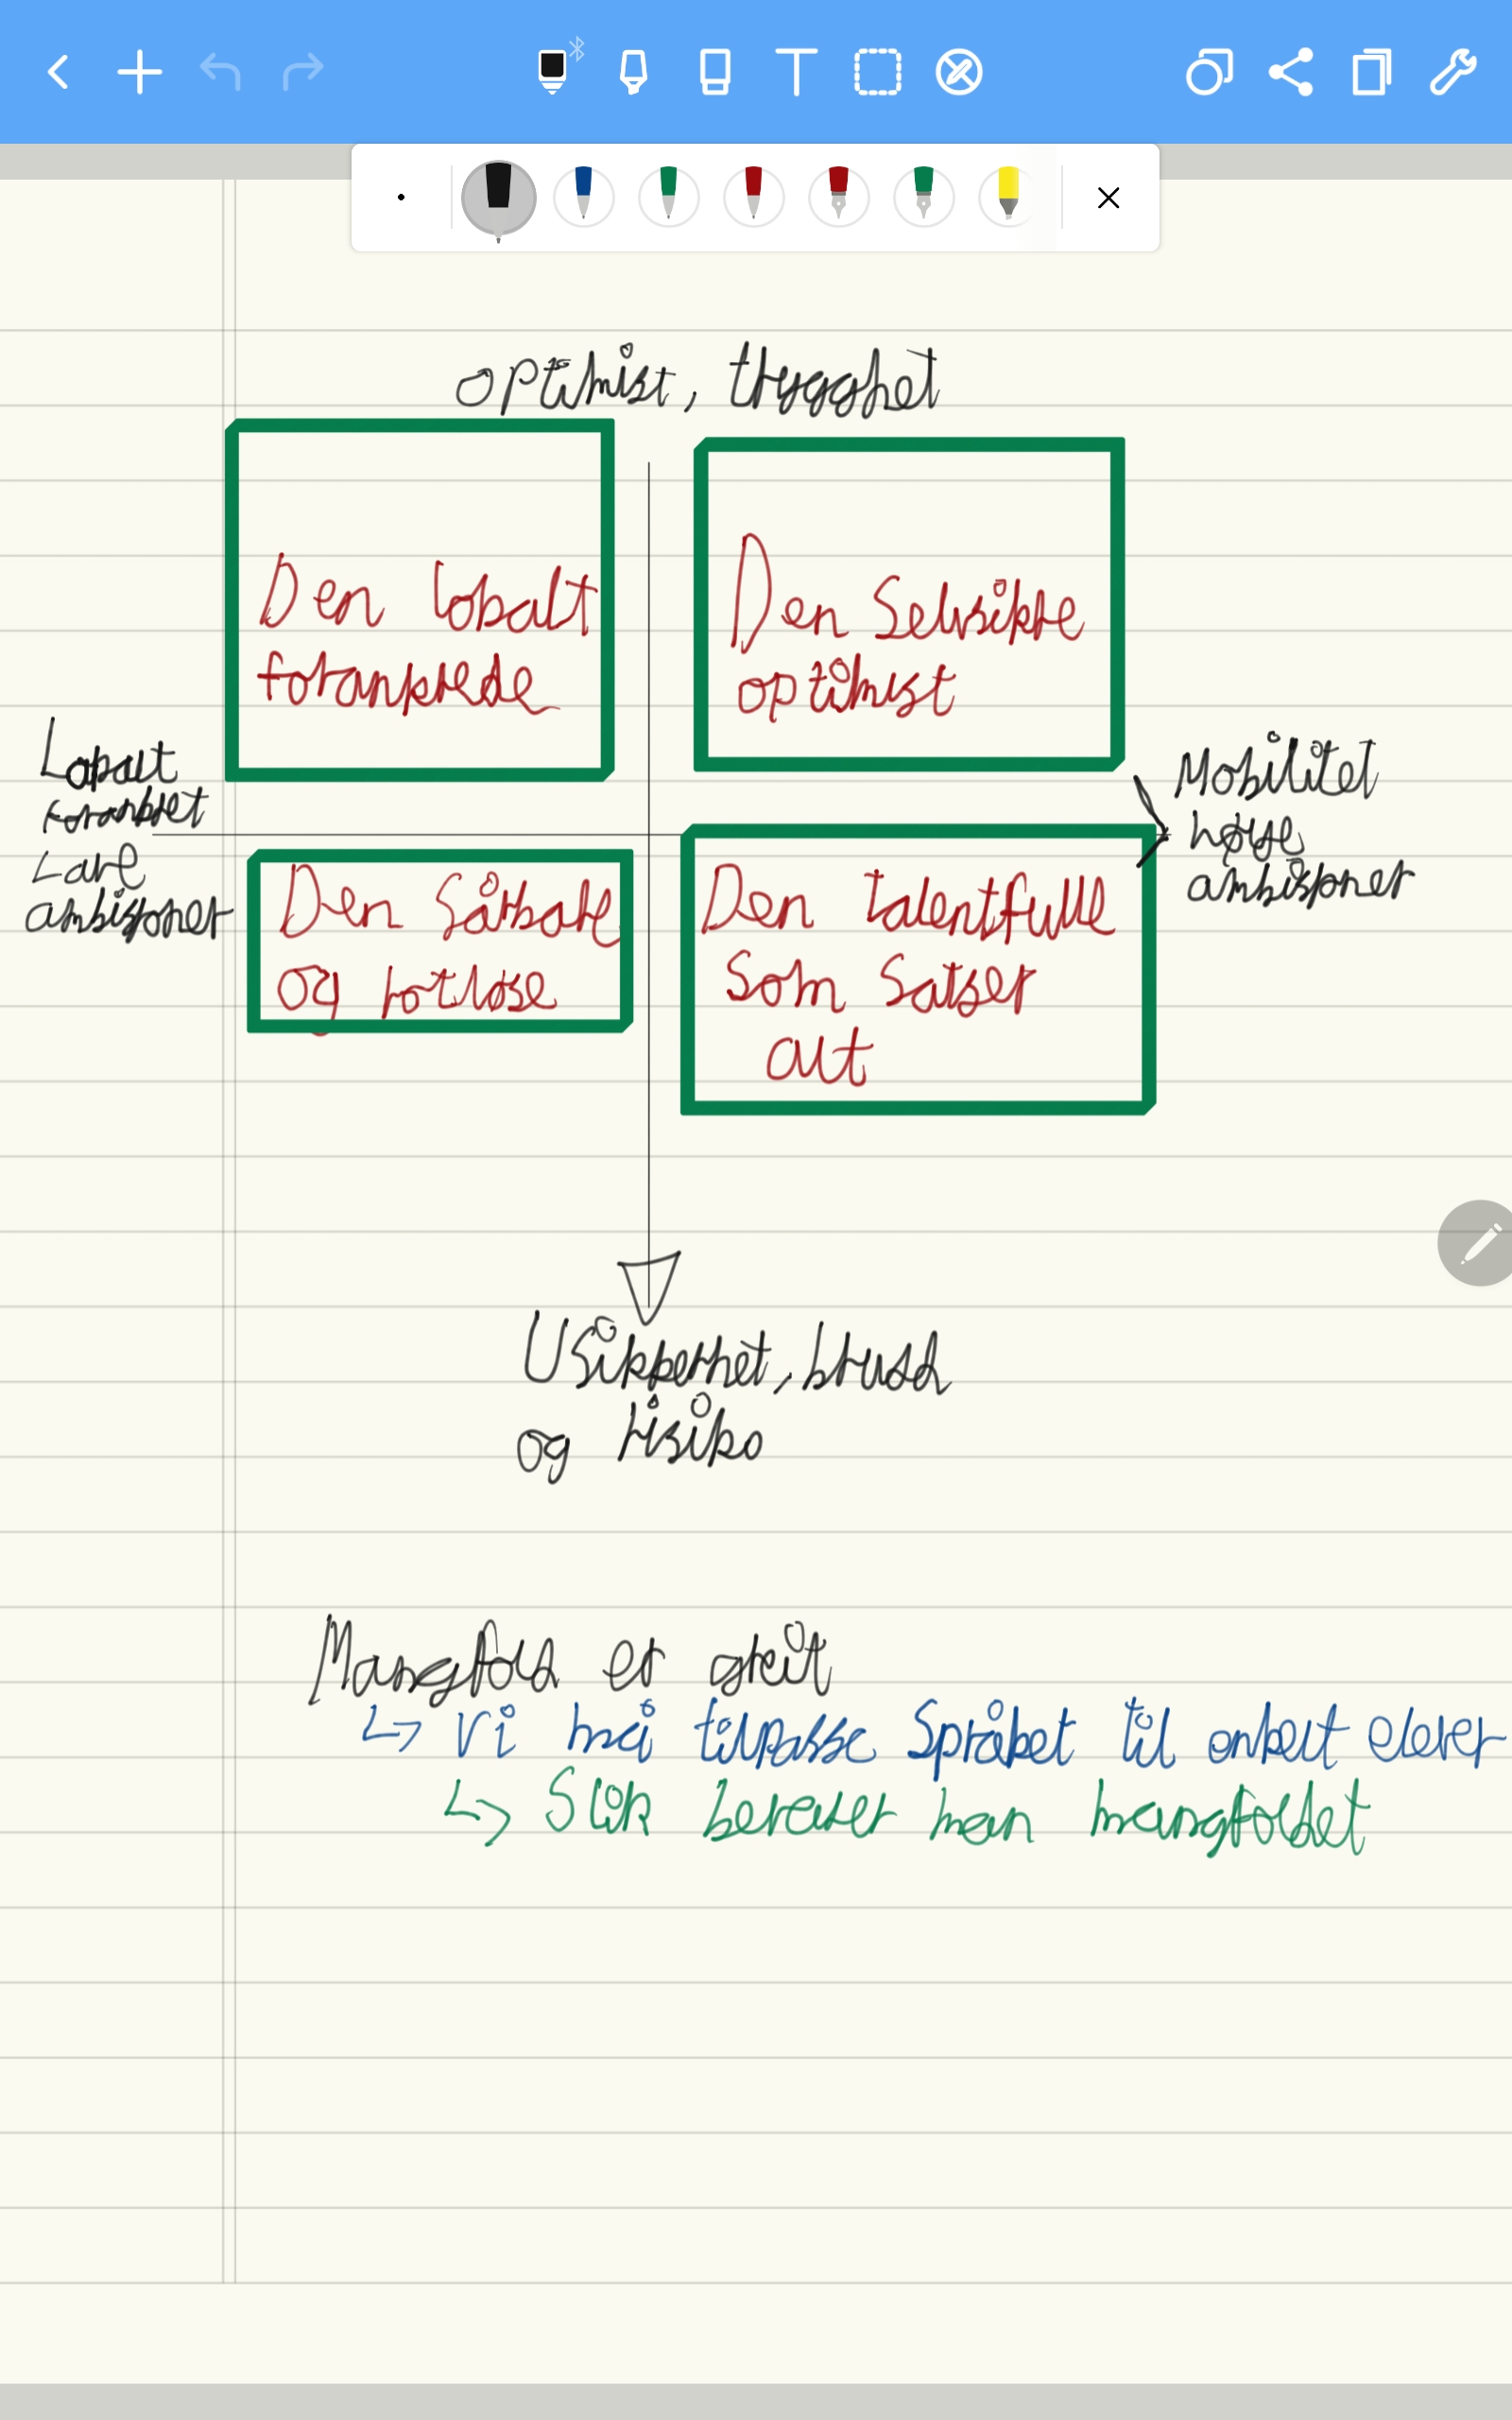 optimist, trygghet
Den lokalt
forankrede
Den Selvsikke
optimist
Lokalt
forankret
Lave
ambisjoner
Mobilitet
høye
ambisjoner
Den Sårbare
og rotløse
Den talentfulle
Som Satser
alt
Usikkerhet, brudd
og risiko
Mangfold er greit
↳ Vi må tilpasse Språket til enkelt elever
↳ Slik bevarer man mangfoldet